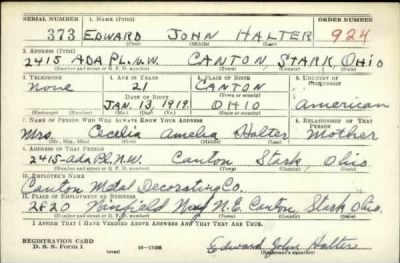 SERIAL NUMBER 1. NAME (Print) ORDER NUMBER
373 EDWARD JOHN HALTER 924
(First) (Middle) (Last)
2. ADDRESS (Print)
2415 ADA PL. N.W. CANTON, STARK, OHIO
(Number and street or R. F. D. number) (Town) (County) (State)
3. TELEPHONE 4. AGE IN YEARS 5. PLACE OF BIRTH 6. COUNTRY OF CITIZENSHIP
None 21 CANTON
(Town or county)
DATE OF BIRTH
JAN. 13, 1919. OHIO American
(Exchange) (No.) (Mo.) (Day) (Yr.) (State or country)
7. NAME OF PERSON WHO WILL ALWAYS KNOW YOUR ADDRESS 8. RELATIONSHIP OF THAT PERSON
Mrs. Cecelia Amelia Halter Mother
(Mr., Mrs., Miss) (First) (Middle) (Last)
9. ADDRESS OF THAT PERSON
2415-Ada Pl. N.W. Canton Stark, Ohio
(Number and street or R. F. D. number) (Town) (County) (State)
10. EMPLOYER'S NAME
Canton Metal Decorating Co.
11. PLACE OF EMPLOYMENT OR BUSINESS
2820 Winfield Way N.E. Canton Stark Ohio.
(Number and street or R. F. D. number) (Town) (County) (State)
I AFFIRM THAT I HAVE VERIFIED ABOVE ANSWERS AND THAT THEY ARE TRUE.
REGISTRATION CARD
D. S. S. Form 1
Edward John Halter
(Registrant's signature)